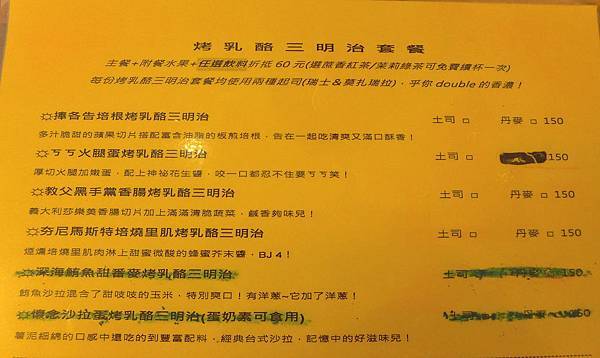 烤乳酪三明治套餐
主餐+附餐水果+任選飲料折抵 60 元(選蔗香紅茶/茉莉綠茶可免費續杯一次)
每份烤乳酪三明治套餐均使用兩種起司(瑞士&莫扎瑞拉)，乎你 double 的香濃！
☼捧各告培根烤乳酪三明治 土司 □ 丹麥 □ 150
多汁脆甜的蘋果切片搭配富含油脂的板煎培根，告在一起吃清爽又滿口酥香！
☼ㄎㄎ火腿蛋烤乳酪三明治 土司 □ 150
厚切火腿加嫩蛋，配上神祕花生醬，咬一口都忍不住要ㄎㄎ笑！
☼教父黑手黨香腸烤乳酪三明治 土司 □ 丹麥 □ 150
義大利莎樂美香腸切片加上滿滿清脆蔬菜，鹹香夠味兒！
☼夯尼馬斯特培燒里肌烤乳酪三明治 土司 □ 丹麥 □ 150
煙燻培燒里肌肉淋上甜蜜微酸的蜂蜜芥末醬，BJ 4！
☼深海鮪魚甜番麥烤乳酪三明治 土司 □ 丹麥 □ 150
鮪魚沙拉混合了甜吱吱的玉米，特別爽口！有洋蔥~它加了洋蔥！
☼懷念沙拉蛋烤乳酪三明治(蛋奶素可食用) 土司 □ 丹麥 □ 150
薯泥細綿的口感中還吃的到豐富配料，經典台式沙拉，記憶中的好滋味兒！